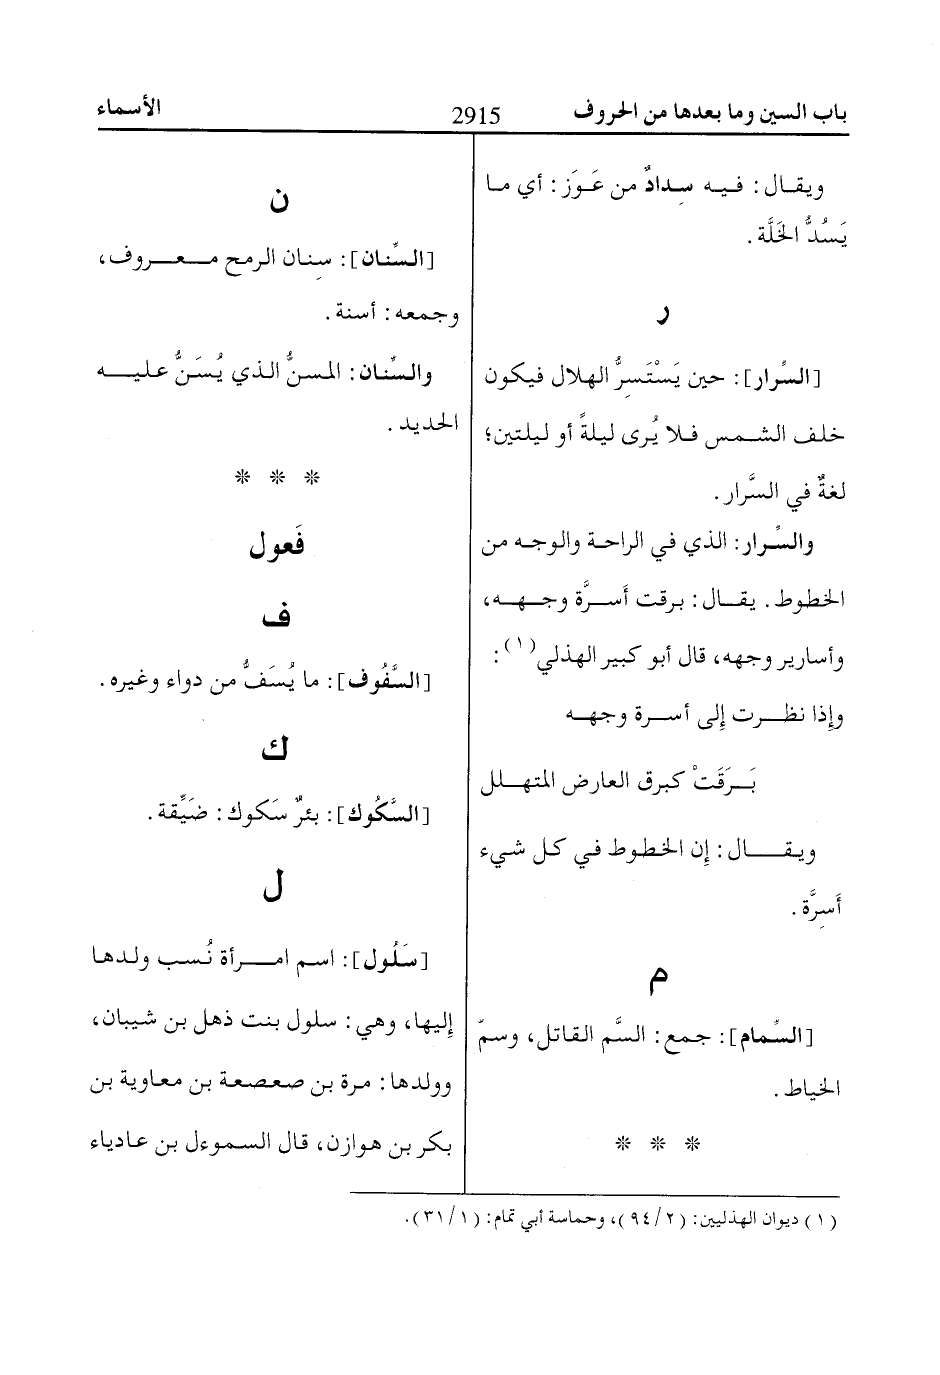 باب السين وما بعدها من الحروف
2915
الأسماء
ويقال: فيه سِدادٌ من عَوَز: أي ما
يَسُدُّ الخَلَّة.
ر
[السِّرار]: حين يَسْتَسِرُّ الهلال فيكون
خلف الشمس فلا يُرى ليلةً أو ليلتين؛
لغةٌ في السَّرار.
والسِّرار: الذي في الراحة والوجه من
الخطوط. يقال: برقت أسرَّة وجهه،
وأسارير وجهه، قال أبو كبير الهذلي(١):
وإذا نظرت إلى أسرة وجهه
بَرَقَتْ كبرق العارض المتهلل
ويقال: إن الخطوط في كل شيء
أَسِرَّة.
م
[السِّمام]: جمع: السَّم القاتل، وسمّ
الخياط.
* * *
ن
[السِّنان]: سِنان الرمح معروف،
وجمعه: أسنة.
والسِّنان: المسنُّ الذي يُسَنُّ عليه
الحديد.
* * *
فَعول
ف
[السَّفُوف]: ما يُسَفُّ من دواء وغيره.
ك
[السَّكُوك]: بئرٌ سَكوك: ضَيِّقة.
ل
[سَلُول]: اسم امرأة نُسب ولدها
إليها، وهي: سلول بنت ذهل بن شيبان،
وولدها: مرة بن صعصعة بن معاوية بن
بكر بن هوازن، قال السموءل بن عادياء
(١) ديوان الهذليين: (٩٤/٢)، وحماسة أبي تمام: (٣١/١).